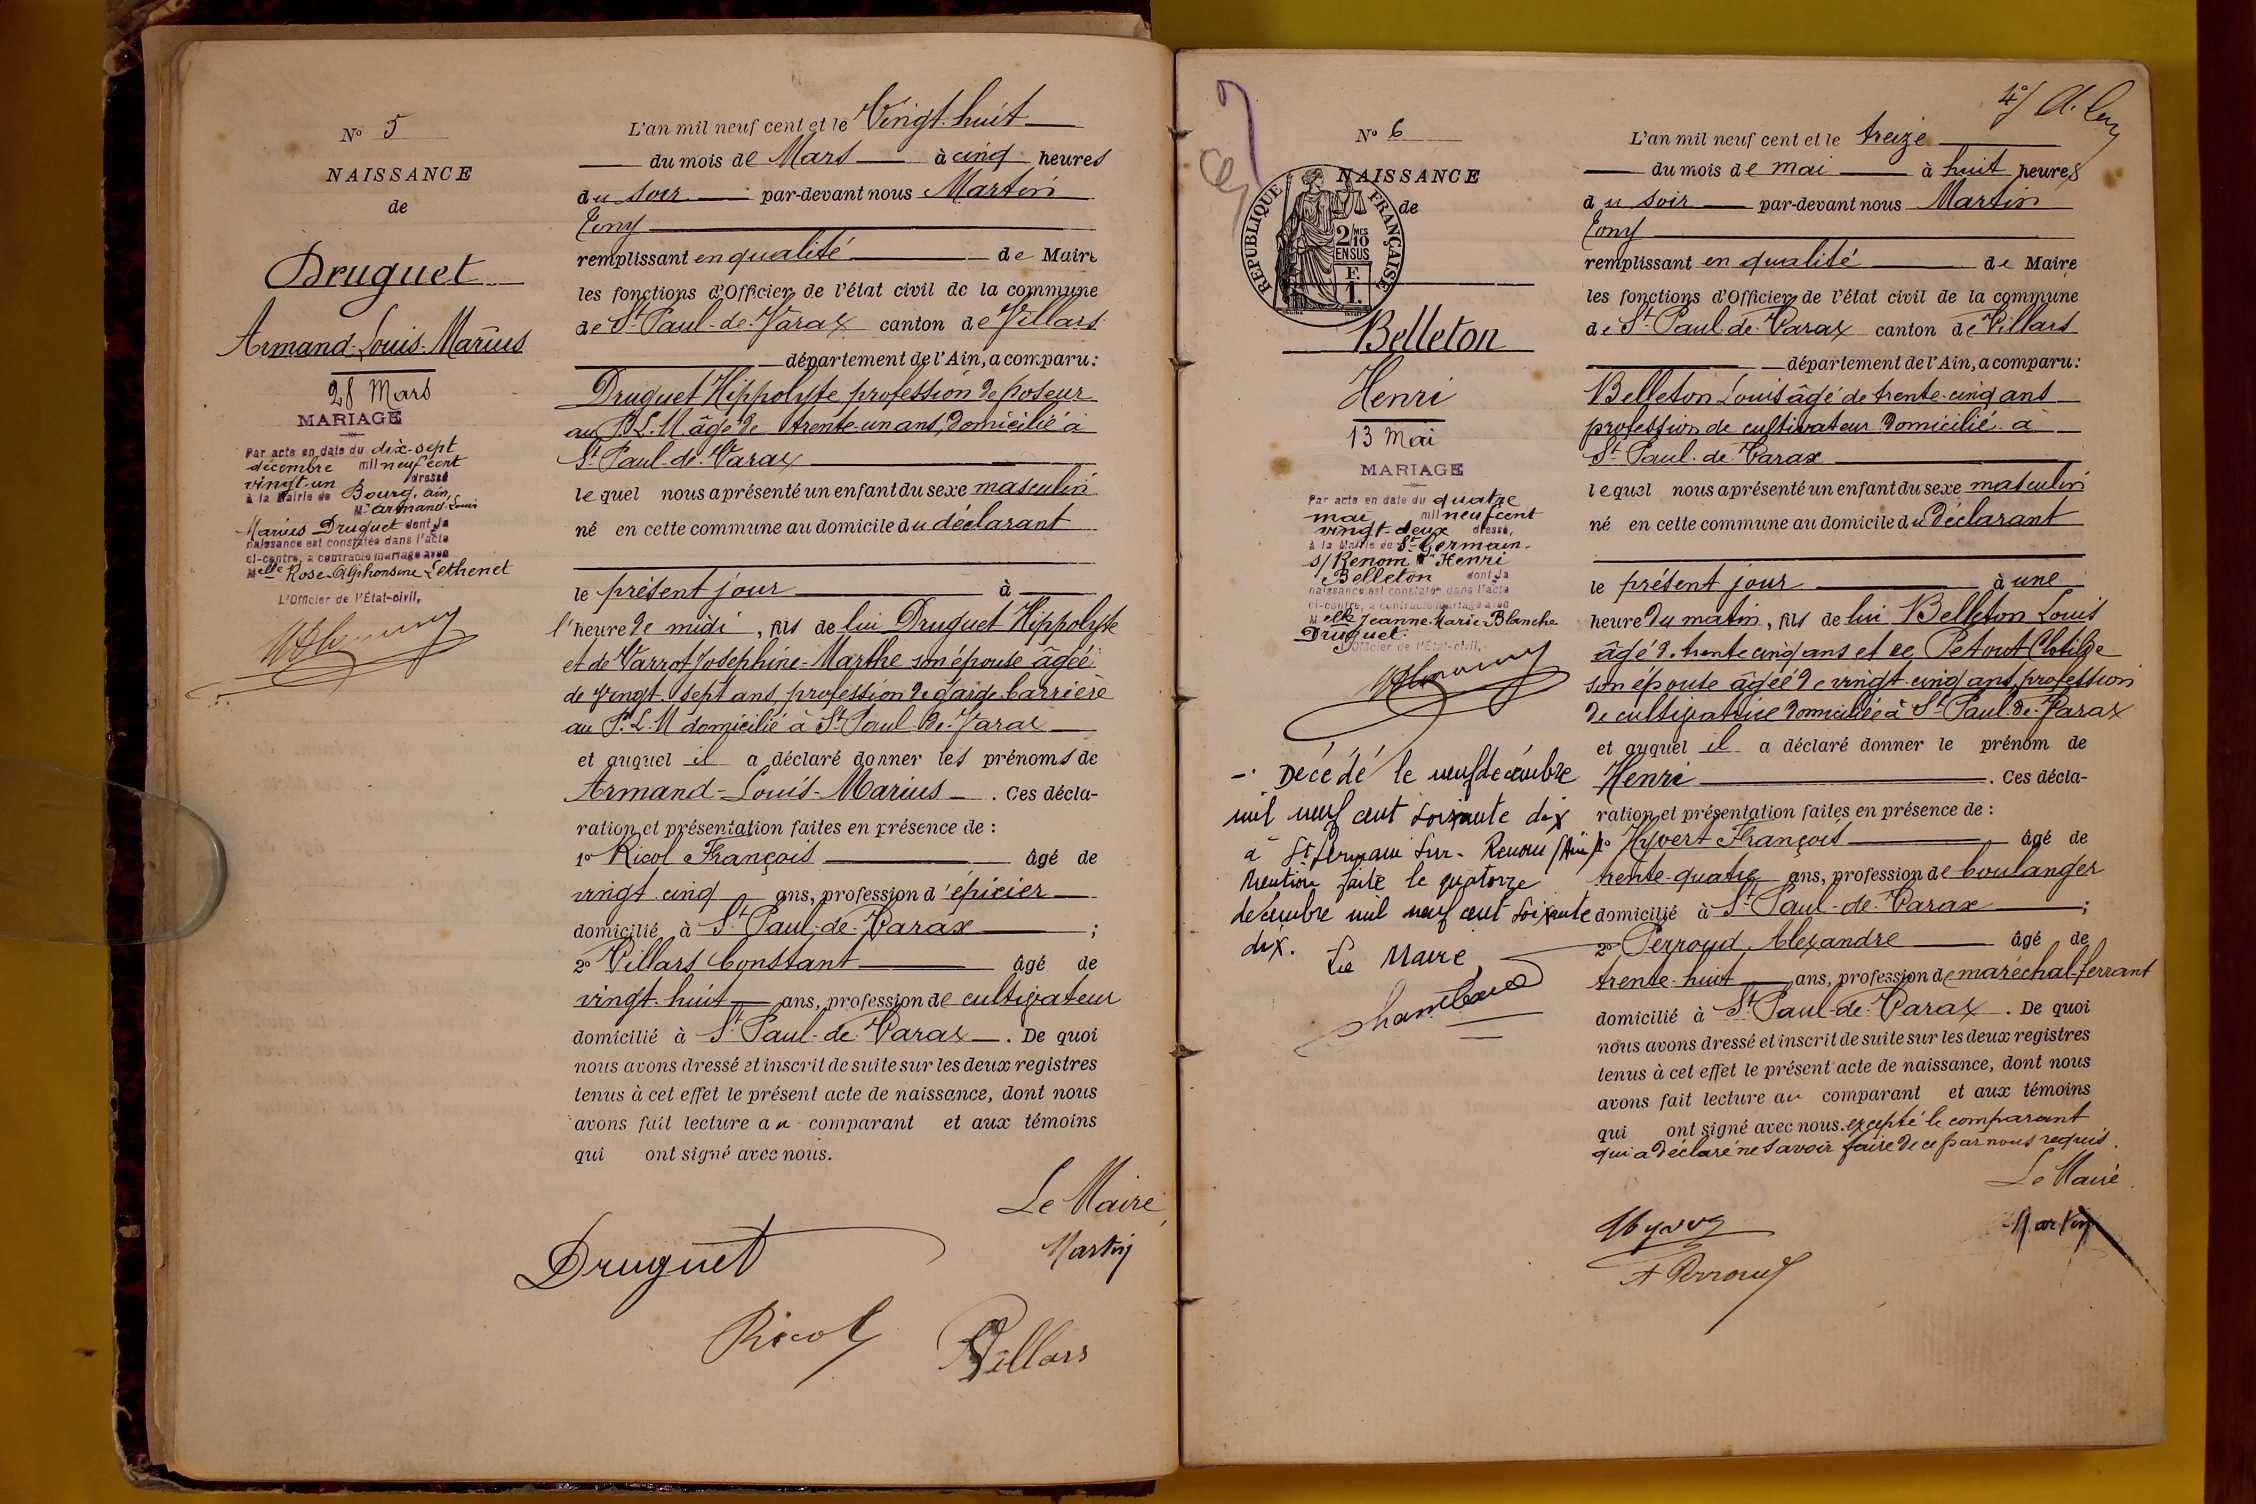 N° 5
NAISSANCE
de
Druguet
Armand-Louis-Marius
28 Mars
MARIAGE
Par acte en date du dix-sept
décembre mil neuf cent
vingt-un dressé
à la Mairie de Bourg, ain,
Mr armand-Louis
Marius Druguet dont la
naissance est constatée dans l'acte
ci-contre, a contracté mariage avec
Melle Rose-Alphonsine Lethenet
L'Officier de l'État-civil,
L'an mil neuf cent et le Vingt-huit
du mois de Mars à cinq heures
du soir par-devant nous Martin
Tony
remplissant en qualité de Maire
les fonctions d'Officier de l'état civil de la commune
de St Paul-de-Varax canton de Villars
département de l'Ain, a comparu :
Druguet Hippolyte profession de poseur
au P.L.M âgé de trente-un ans, domicilié à
St Paul-de-Varax
lequel nous a présenté un enfant du sexe masculin
né en cette commune au domicile du déclarant
le présent jour à
l'heure de midi, fils de lui Druguet Hippolyte
et de Varrot Joséphine-Marthe son épouse âgée
de vingt-sept ans, profession de garde-barrière
au P.L.M domicilié à St Paul-de-Varax
et auquel il a déclaré donner les prénoms de
Armand-Louis-Marius. Ces décla-
ration et présentation faites en présence de :
1° Ricol François âgé de
vingt-cinq ans, profession d'épicier
domicilié à St Paul-de-Varax ;
2° Villars Constant âgé de
vingt-huit ans, profession de cultivateur
domicilié à St Paul-de-Varax. De quoi
nous avons dressé et inscrit de suite sur les deux registres
tenus à cet effet le présent acte de naissance, dont nous
avons fait lecture au comparant et aux témoins
qui ont signé avec nous.
Le Maire,
Martin
Druguet
Ricol
Villars
N° 6
NAISSANCE
de
RÉPUBLIQUE FRANÇAISE
2/10 MES
EN SUS
F.
1.
Belleton
Henri
13 Mai
MARIAGE
Par acte en date du quatre
mai mil neuf cent
vingt-deux dressé,
à la Mairie de St-Germain-
s/Renom Mr Henri
Belleton dont la
naissance est constatée dans l'acte
ci-contre, a contracté mariage avec
Melle Jeanne-Marie-Blanche
Druguet.
L'Officier de l'État-civil,
-. Décédé le neuf décembre
mil neuf cent soixante dix
à St Germain sur-Renom (Ain)
Mention faite le quatorze
décembre mil neuf cent soixante
dix. Le Maire,
L'an mil neuf cent et le treize
du mois de mai à huit heures
du soir par-devant nous Martin
Tony
remplissant en qualité de Maire
les fonctions d'Officier de l'état civil de la commune
de St Paul-de-Varax canton de Villars
département de l'Ain, a comparu :
Belleton Louis âgé de trente-cinq ans
profession de cultivateur domicilié à
St Paul-de-Varax
lequel nous a présenté un enfant du sexe masculin
né en cette commune au domicile du déclarant
le présent jour à une
heure du matin, fils de lui Belleton Louis
âgé de trente cinq ans et de Petout Clotilde
son épouse âgée de vingt-cinq ans, profession
de cultivatrice domiciliée à St Paul-de-Varax
et auquel il a déclaré donner le prénom de
Henri. Ces décla-
ration et présentation faites en présence de :
1° Hyvert François âgé de
trente-quatre ans, profession de boulanger
domicilié à St Paul-de-Varax ;
2° Perroud Alexandre âgé de
trente-huit ans, profession de maréchal-ferrant
domicilié à St Paul-de-Varax. De quoi
nous avons dressé et inscrit de suite sur les deux registres
tenus à cet effet le présent acte de naissance, dont nous
avons fait lecture au comparant et aux témoins
qui ont signé avec nous. excepté le comparant
qui a déclaré ne savoir faire de ce par nous requis.
Le Maire
Martin
Hyvert
A Perroud